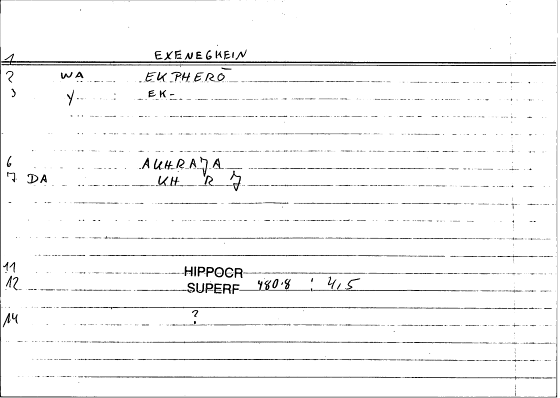 1 EXENEGKEIN
2 WA EKPHERŌ
3 Y EK-
6 AUHRAJA
7 DA UH R J
11 HIPPOCR
12 SUPERF 480.8 : 4,5
14 ?